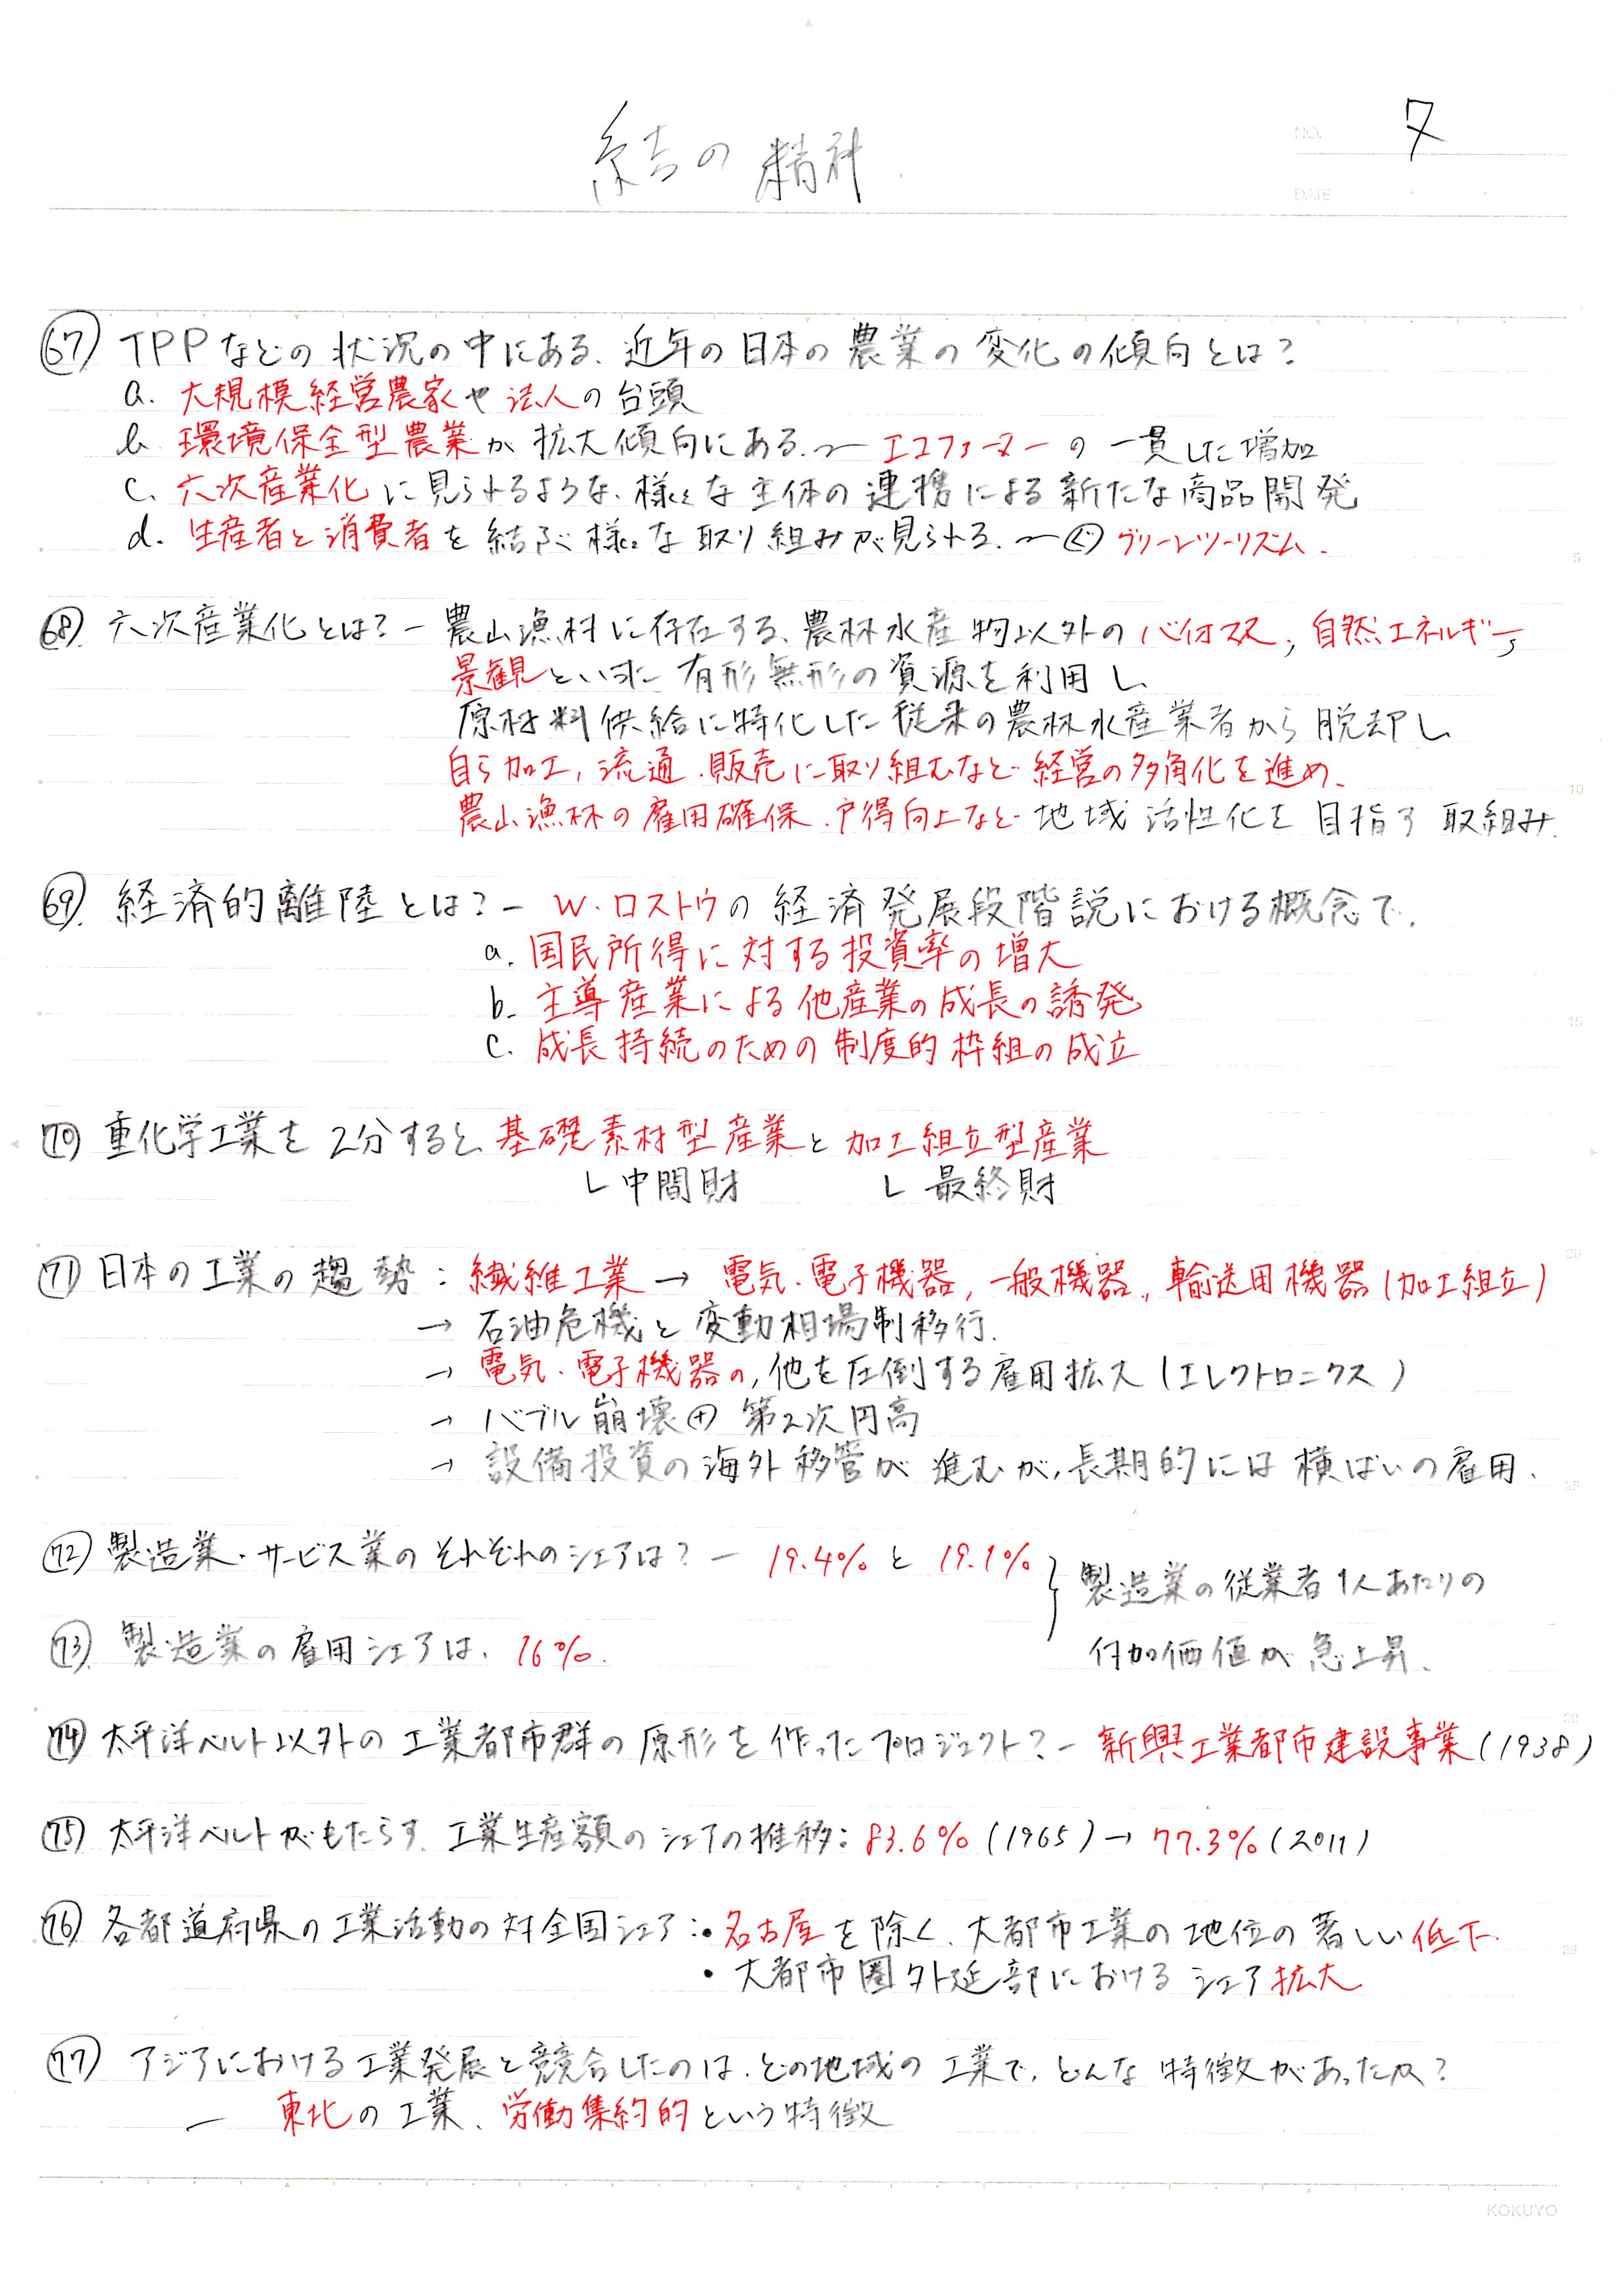 NO. 7
結の精神.
DATE
67 TPPなどの状況の中にある、近年の日本の農業の変化の傾向とは?
a. 大規模経営農家や法人の台頭
b. 環境保全型農業が拡大傾向にある.〜エコファーマーの一貫した増加
c. 六次産業化に見られるような、様々な主体の連携による新たな商品開発
d. 生産者と消費者を結ぶ様々な取り組みが見られる.〜グリーンツーリズム.
68. 六次産業化とは?ー農山漁村に存在する、農林水産物以外のバイオマス, 自然エネルギー,
景観といった有形無形の資源を利用し、
原材料供給に特化した従来の農林水産業者から脱却し、
自ら加工, 流通.販売に取り組むなど経営の多角化を進め、
農山漁村の雇用確保.所得向上など地域活性化を目指す取組み.
69. 経済的離陸とは?ーW・ロストウの経済発展段階説における概念で.
a. 国民所得に対する投資率の増大
b. 主導産業による他産業の成長の誘発
c. 成長持続のための制度的枠組の成立
70 重化学工業を2分すると、基礎素材型産業と加工組立型産業
└中間財 └最終財
71 日本の工業の趨勢:繊維工業→電気・電子機器, 一般機器, 輸送用機器(加工組立)
→石油危機と変動相場制移行.
→電気・電子機器の, 他を圧倒する雇用拡大(エレクトロニクス)
→バブル崩壊⊕第2次円高
→設備投資の海外移管が進むが, 長期的には横ばいの雇用.
72 製造業・サービス業のそれぞれのシェアは?ー19.4%と19.1%
製造業の従業者1人あたりの
73. 製造業の雇用シェアは、16%.
付加価値が急上昇、
74 太平洋ベルト以外の工業都市群の原形を作ったプロジェクト?ー新興工業都市建設事業(1938)
75 太平洋ベルトがもたらす.工業生産額のシェアの推移:83.6%(1965)→77.3%(2011)
76 各都道府県の工業活動の対全国シェア:•名古屋を除く、大都市工業の地位の著しい低下.
•大都市圏外延部におけるシェア拡大
77 アジアにおける工業発展と競合したのは、どの地域の工業で、どんな特徴があったか?
ー東北の工業、労働集約的という特徴
KOKUYO